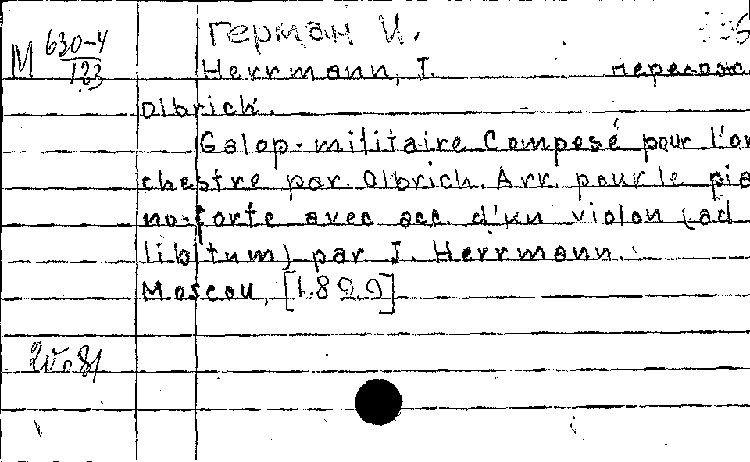 Герман И.
М 630-4
123
Herrmann, I. перелож
Olbrich.
Galop-militaire Composé pour l'or
chestre par Olbrich. Arr. pour le pia
no-forte avec acc. d'un violon (ad
libitum) par I. Herrmann.
Moscou, [1899]